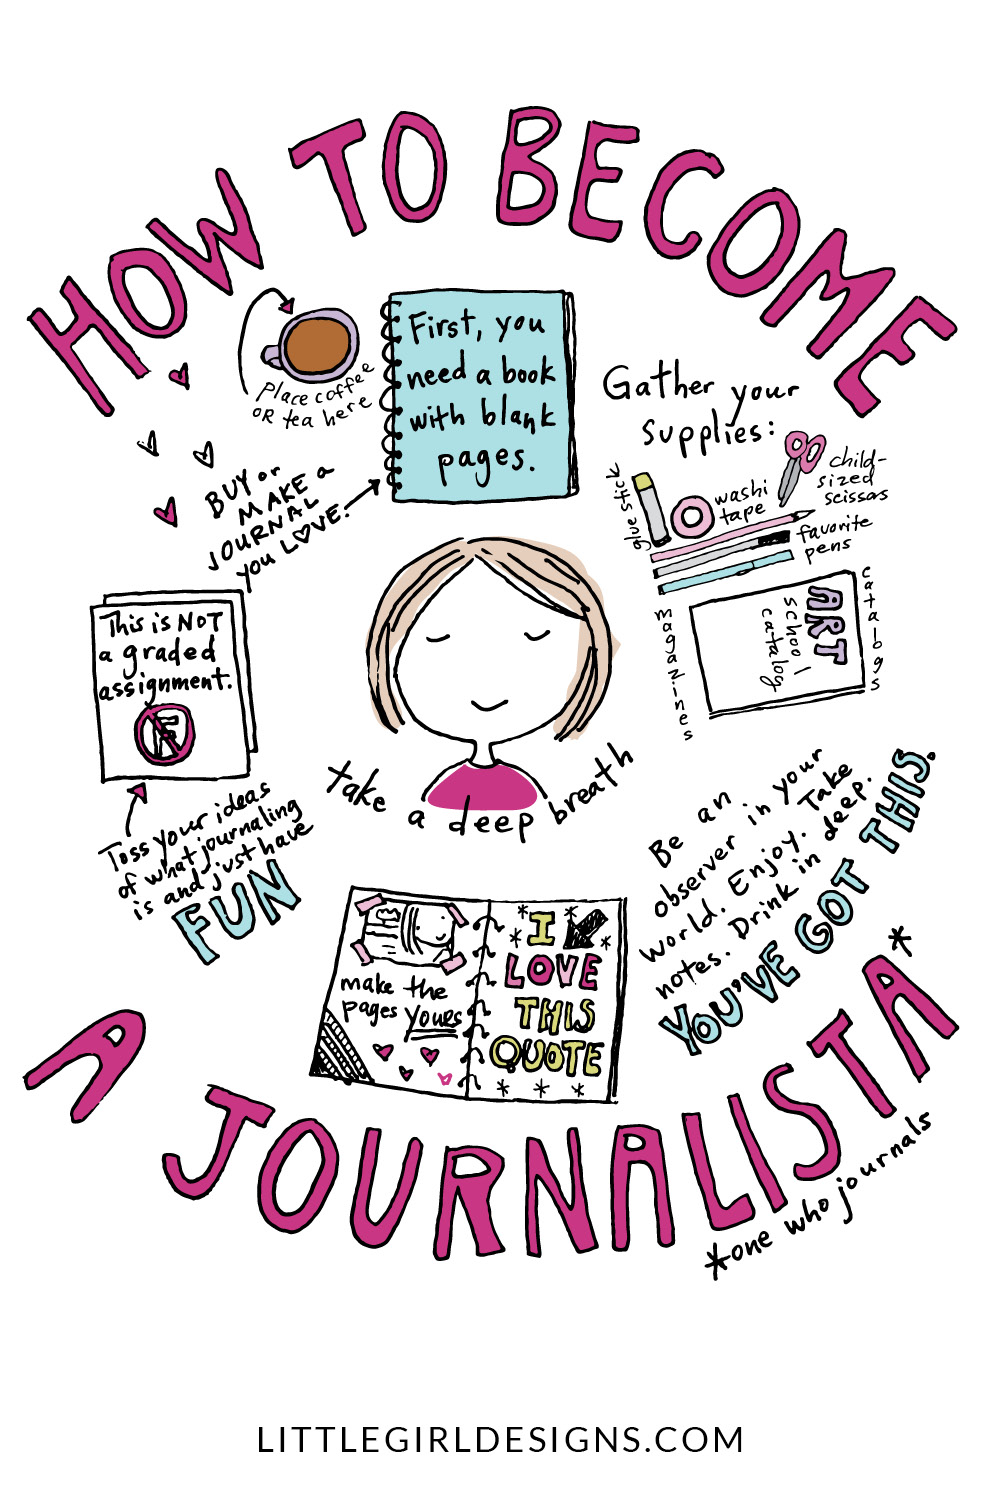 HOW TO BECOME
place coffee
OR tea here
First, you
need a book
with blank
pages.
BUY or
MAKE a
JOURNAL
you LOVE.
Gather your
supplies:
glue stick
washi
tape
child-
sized
scissors
favorite
pens
magazines
ART
school
catalog
catalogs
This is NOT
a graded
assignment.
F
Toss your ideas
of what journaling
is and just have
FUN
take a deep breath
Be an
observer in your
world. Enjoy. Take
notes. Drink in deep.
YOU'VE GOT THIS.
make the
pages yours
I
LOVE
THIS
QUOTE
A JOURNALISTA*
*one who journals
LITTLEGIRLDESIGNS.COM